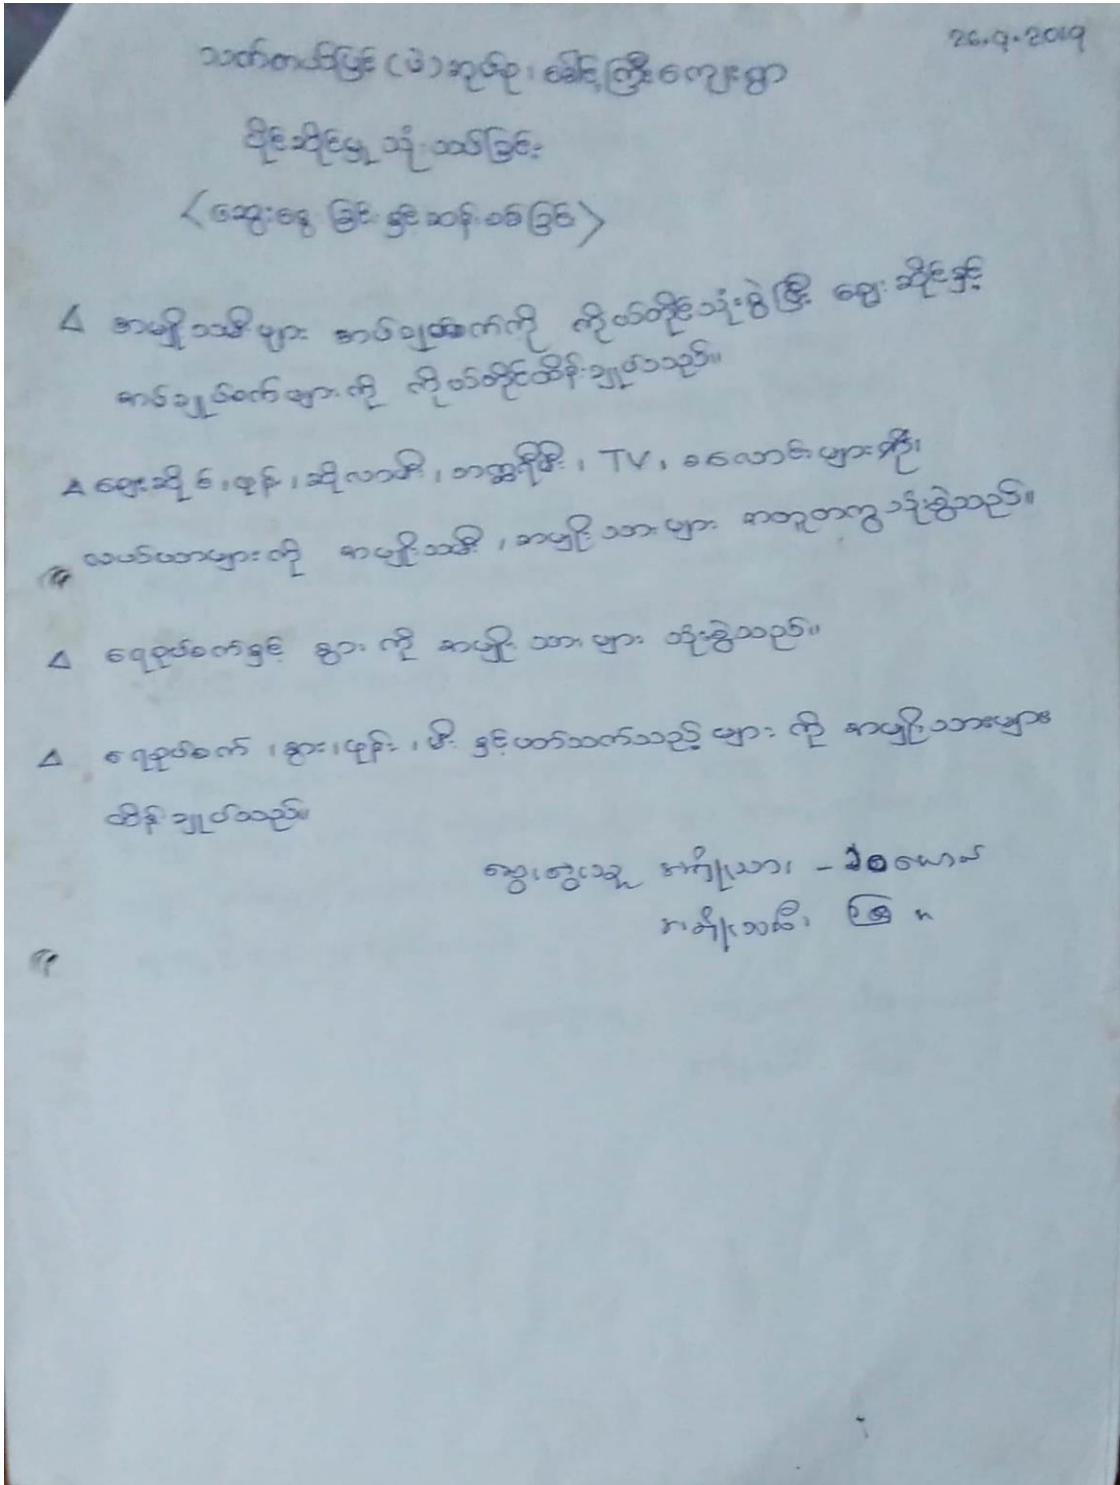 26.9.2019
သက်တယ်ပြင် (မဲ) အုပ်စု၊ ခေါင်ကြီးကျေးရွာ
ပိုင်ဆိုင်မှု သုံးသပ်ခြင်း
<ဆွေးနွေးခြင်းနှင့် ဆန်းစစ်ခြင်း>
△ အမျိုးသမီးများ အပ်ချုပ်စက်ကို ကိုယ်တိုင်သုံးစွဲပြီး ဈေးဆိုင်နှင့်
အပ်ချုပ်စက်များကို ကိုယ်တိုင်ထိန်းချုပ်သည်။
△ ဈေးဆိုင်၊ ဖုန်း၊ ဆိုလာမီး၊ ဘက္ထရီမီး၊ TV၊ စလောင်းများ
လယ်ယာများကို အမျိုးသမီး၊ အမျိုးသားများ အတူတကွ သုံးစွဲသည်။
△ ရေစုပ်စက်နှင့် နွားကို အမျိုးသားများ သုံးစွဲသည်။
△ ရေစုပ်စက်၊ နွား၊ ဖုန်း၊ မီးနှင့်ပတ်သက်သည့်များကို အမျိုးသားများ
ထိန်းချုပ်သည်။
ဆွေးနွေးသူ အမျိုးသား - ယောက်
အမျိုးသမီး "